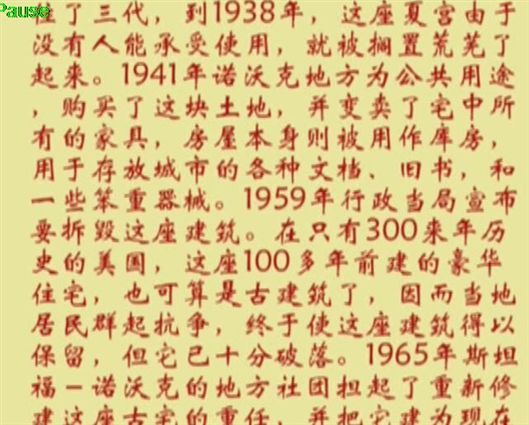 Pause
了三代，到1938年，这座夏宫由于
没有人能承受使用，就被搁置荒芜了
起来。1941年诺沃克地方为公共用途
，购买了这块土地，并变卖了宅中所
有的家具，房屋本身则被用作库房，
用于存放城市的各种文档、旧书，和
一些笨重器械。1959年行政当局宣布
要拆毁这座建筑。在只有300来年历
史的美国，这座100多年前建的豪华
住宅，也可算是古建筑了，因而当地
居民群起抗争，终于使这座建筑得以
保留，但它已十分破落。1965年斯坦
福－诺沃克的地方社团担起了重新修
建这座古宅的重任，并把它建为现在